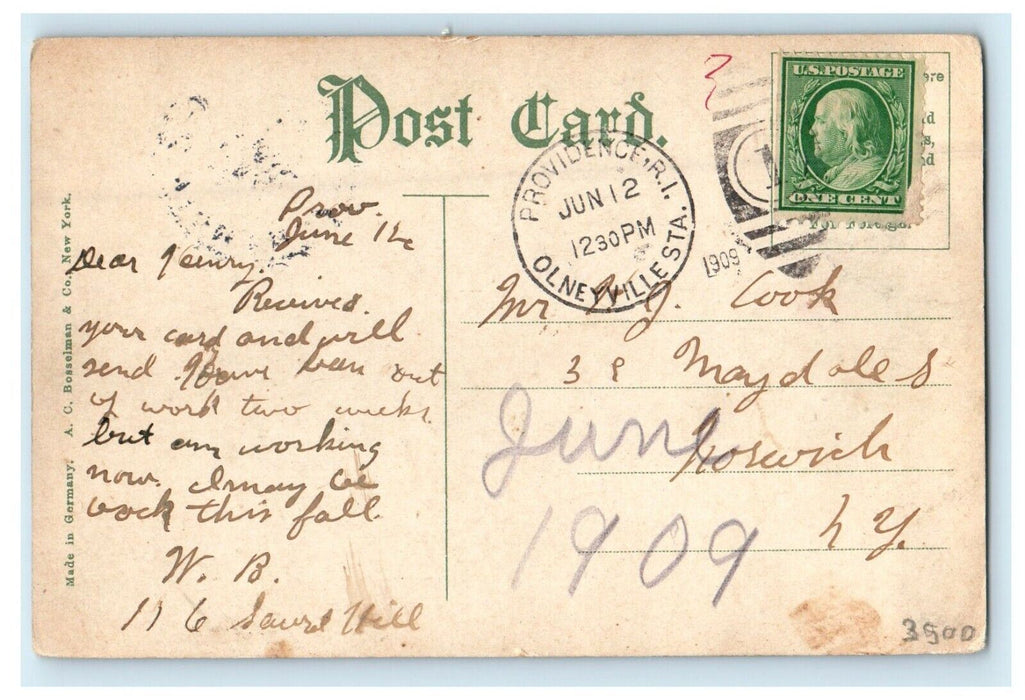 Post Card.
U.S. POSTAGE
ONE CENT
For Foreign
PROVIDENCE, R.I.
JUN 12
12 30 PM
OLNEYVILLE STA.
1909
1
Made in Germany. A. C. Bosselman & Co., New York.
Prov.
June 12
Dear Henry.
Recived
your card and will
send have ban out
of work two weeks
but am working
now. I may be
back this fall
W. B.
116 Hill
Mr H. J. Cook
38 Maydole S
Norwich
N Y.
June
1909
3500